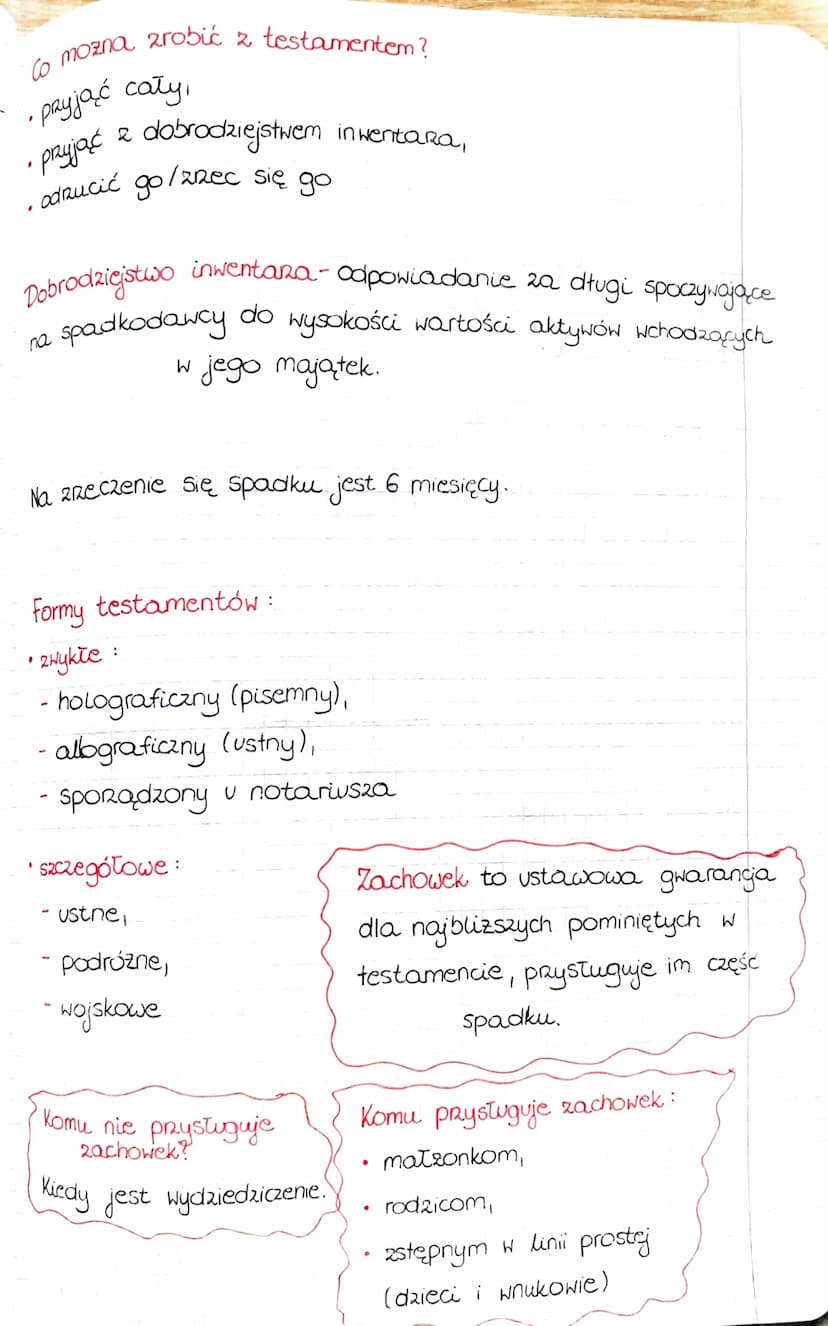 Co można zrobić z testamentem?
• przyjąć cały,
• przyjąć z dobrodziejstwem inwentarza,
• odrzucić go/zrzec się go
Dobrodziejstwo inwentarza - odpowiadanie za długi spoczywające
na spadkodawcy do wysokości wartości aktywów wchodzących
w jego majątek.
Na zrzeczenie się spadku jest 6 miesięcy.
Formy testamentów:
• zwykłe:
- holograficzny (pisemny),
- allograficzny (ustny),
- sporządzony u notariusza
• szczegółowe:
- ustne,
- podróżne,
- wojskowe
Zachowek to ustawowa gwarancja
dla najbliższych pominiętych w
testamencie, przysługuje im część
spadku.
Komu nie przysługuje
zachowek?
Kiedy jest wydziedziczenie.
Komu przysługuje zachowek:
• małżonkom,
• rodzicom,
• zstępnym w linii prostej
(dzieci i wnukowie)